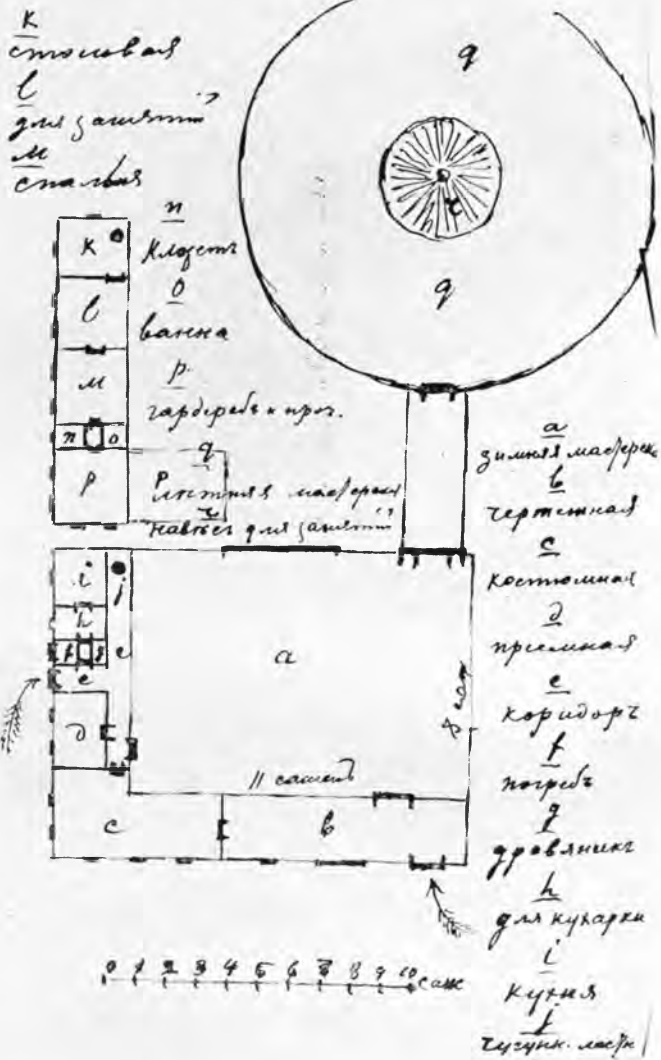 к
столовая
l
для занятій
м
спальня
n
Клозетъ
o
ванна
p
гардеробъ и проч.
q
лѣтняя мастерская
r
навѣсъ для занятій
q
r
q
к
l
м
n o
p
p
i
j
h
f g
e
e
a
д
8 саж
11 саженъ
c
b
0 1 2 3 4 5 6 7 8 9 10 саж
a
зимняя мастерск
b
чертежная
c
костюмная
д
пріемная
e
коридоръ
f
погребъ
g
дровяникъ
h
для кухарки
i
кухня
j
чугунн. лѣстн